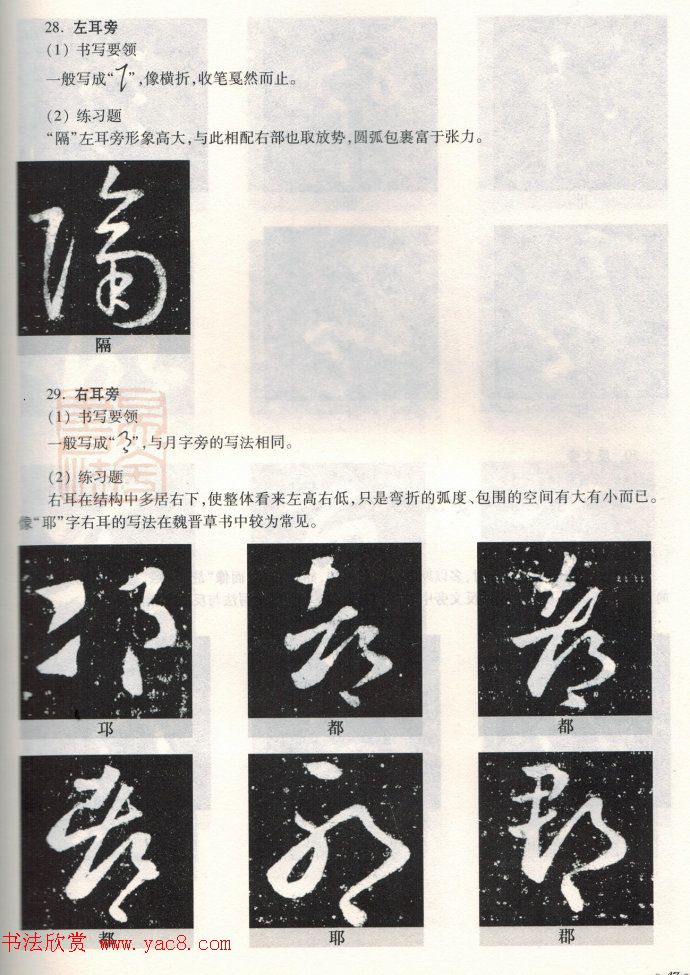 28. 左耳旁
(1) 书写要领
一般写成“”,像横折,收笔戛然而止。
(2) 练习题
“隔”左耳旁形象高大,与此相配右部也取放势,圆弧包裹富于张力。
隔
29. 右耳旁
(1) 书写要领
一般写成“”,与月字旁的写法相同。
(2) 练习题
右耳在结构中多居右下,使整体看来左高右低,只是弯折的弧度、包围的空间有大有小而已。
像“耶”字右耳的写法在魏晋草书中较为常见。
邛 都 都
都 耶 郡
书法欣赏 www.yac8.com